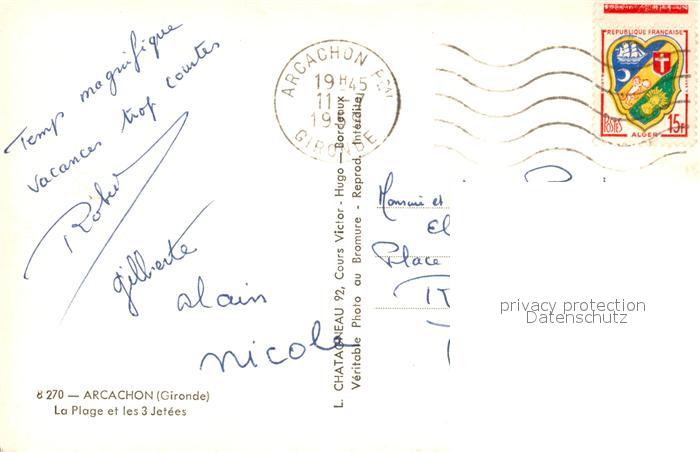 Temps magnifique
vacances trop courtes
Robert
gilberte
alain
nicole
8 270 — ARCACHON (Gironde)
La Plage et les 3 Jetées
L. CHATAGNEAU 92, Cours Victor - Hugo - Bordeaux
Véritable Photo au Bromure - Reprod. Interdite
ARCACHON Pᴾᴬᴸ
19 H 45
11
19
GIRONDE
REPUBLIQUE FRANÇAISE
POSTES
15F
ALGER
Monsieur et
El
Place
privacy protection
Datenschutz